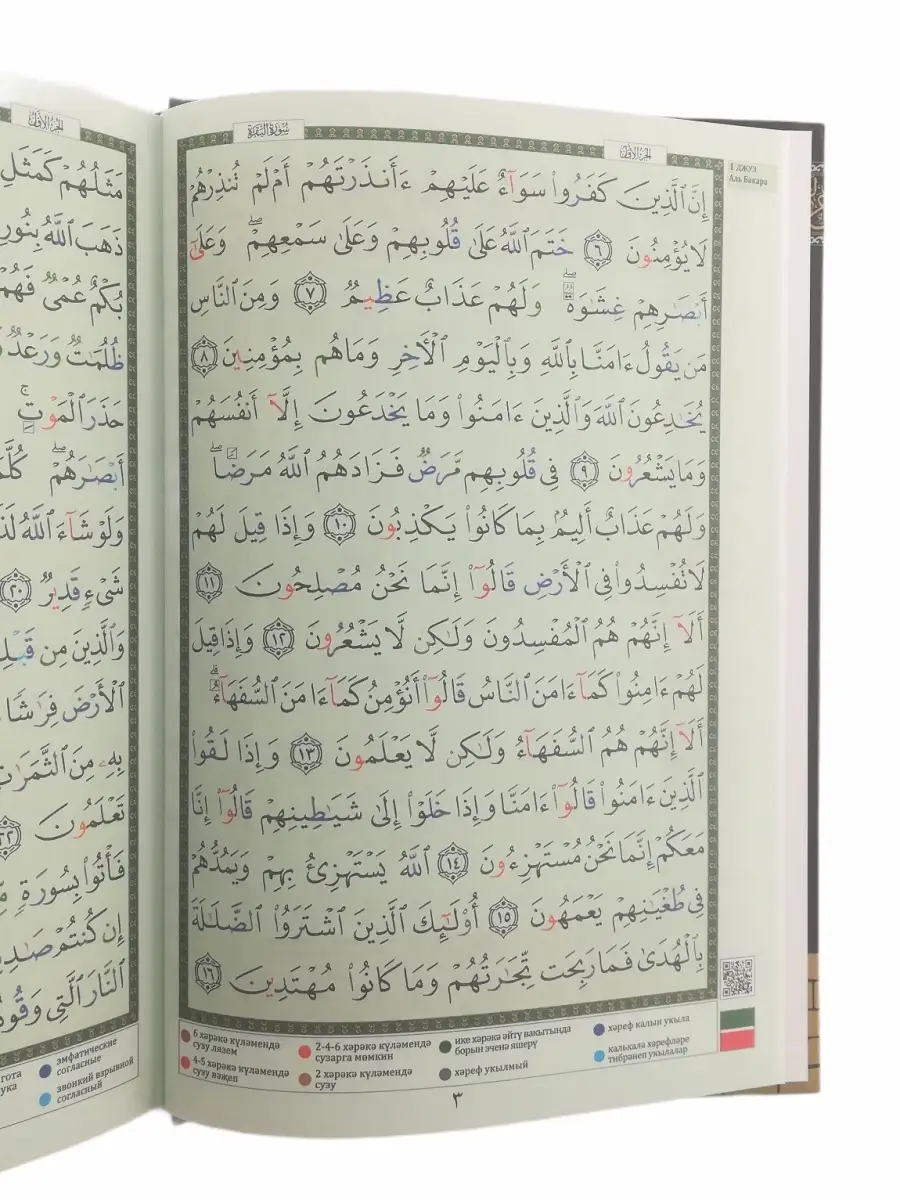 سُورَةُ البَقَرَةِ
الجُزءُ الأَوَّلُ
1 ДЖУЗ
Аль Бакара
إِنَّ ٱلَّذِينَ كَفَرُوا۟ سَوَآءٌ عَلَيْهِمْ ءَأَنذَرْتَهُمْ أَمْ لَمْ تُنذِرْهُمْ
لَا يُؤْمِنُونَ ٦ خَتَمَ ٱللَّهُ عَلَىٰ قُلُوبِهِمْ وَعَلَىٰ سَمْعِهِمْ ۖ وَعَلَىٰٓ
أَبْصَـٰرِهِمْ غِشَـٰوَةٌ ۖ وَلَهُمْ عَذَابٌ عَظِيمٌ ٧ وَمِنَ ٱلنَّاسِ
مَن يَقُولُ ءَامَنَّا بِٱللَّهِ وَبِٱلْيَوْمِ ٱلْأَخِرِ وَمَا هُم بِمُؤْمِنِينَ ٨
يُخَـٰدِعُونَ ٱللَّهَ وَٱلَّذِينَ ءَامَنُوا۟ وَمَا يَخْدَعُونَ إِلَّآ أَنفُسَهُمْ
وَمَا يَشْعُرُونَ ٩ فِى قُلُوبِهِم مَّرَضٌ فَزَادَهُمُ ٱللَّهُ مَرَضًا ۖ
وَلَهُمْ عَذَابٌ أَلِيمٌۢ بِمَا كَانُوا۟ يَكْذِبُونَ ١٠ وَإِذَا قِيلَ لَهُمْ
لَا تُفْسِدُوا۟ فِى ٱلْأَرْضِ قَالُوٓا۟ إِنَّمَا نَحْنُ مُصْلِحُونَ ١١
أَلَآ إِنَّهُمْ هُمُ ٱلْمُفْسِدُونَ وَلَـٰكِن لَّا يَشْعُرُونَ ١٢ وَإِذَا قِيلَ
لَهُمْ ءَامِنُوا۟ كَمَآ ءَامَنَ ٱلنَّاسُ قَالُوٓا۟ أَنُؤْمِنُ كَمَآ ءَامَنَ ٱلسُّفَهَآءُ ۗ
أَلَآ إِنَّهُمْ هُمُ ٱلسُّفَهَآءُ وَلَـٰكِن لَّا يَعْلَمُونَ ١٣ وَإِذَا لَقُوا۟
ٱلَّذِينَ ءَامَنُوا۟ قَالُوٓا۟ ءَامَنَّا وَإِذَا خَلَوْا۟ إِلَىٰ شَيَـٰطِينِهِمْ قَالُوٓا۟ إِنَّا
مَعَكُمْ إِنَّمَا نَحْنُ مُسْتَهْزِءُونَ ١٤ ٱللَّهُ يَسْتَهْزِئُ بِهِمْ وَيَمُدُّهُمْ
فِى طُغْيَـٰنِهِمْ يَعْمَهُونَ ١٥ أُو۟لَـٰٓئِكَ ٱلَّذِينَ ٱشْتَرَوُا۟ ٱلضَّلَـٰلَةَ
بِٱلْهُدَىٰ فَمَا رَبِحَت تِّجَـٰرَتُهُمْ وَمَا كَانُوا۟ مُهْتَدِينَ ١٦
6 хәрәкә күләмендә сузу ләзем
2-4-6 хәрәкә күләмендә сузарга мөмкин
ике хәрәкә әйтү вакытында борын эченә яшерү
хәреф калын укыла
4-5 хәрәкә күләмендә сузу вәҗеп
2 хәрәкә күләмендә сузу
хәреф укылмый
калькалә хәрефләре тибрәнеп укылалар
٣
الجُزءُ الأَوَّلُ
مَثَلُهُمْ كَمَثَلِ
ذَهَبَ ٱللَّهُ بِنُورِ
بُكْمٌ عُمْىٌ فَهُمْ
ظُلُمَـٰتٌ وَرَعْدٌ
حَذَرَ ٱلْمَوْتِ ۚ
أَبْصَـٰرَهُمْ ۖ كُلَّمَ
وَلَوْ شَآءَ ٱللَّهُ لَذَ
شَىْءٍ قَدِيرٌ ٢٠
وَٱلَّذِينَ مِن قَبْلِ
ٱلْأَرْضَ فِرَٰشًا
بِهِۦ مِنَ ٱلثَّمَرَٰتِ
تَعْلَمُونَ ٢٢
فَأْتُوا۟ بِسُورَةٍ
إِن كُنتُمْ صَـٰدِ
ٱلنَّارَ ٱلَّتِى وَقُودُ
гота
ука
эмфатические согласные
звонкий взрывной согласный